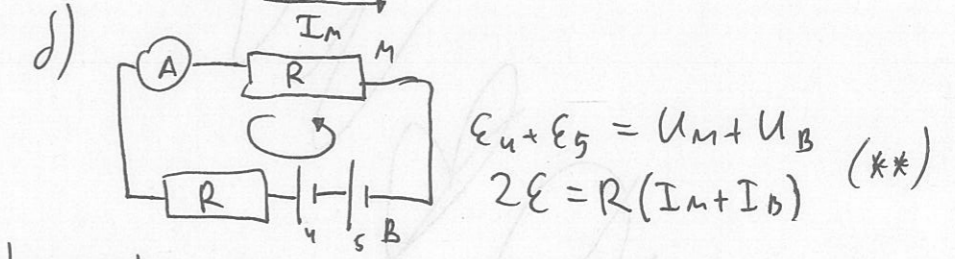 б)
I_M
A R M
R 4 5 B
ε₄ + ε₅ = U_M + U_B
2ε = R(I_M + I_B) (**)